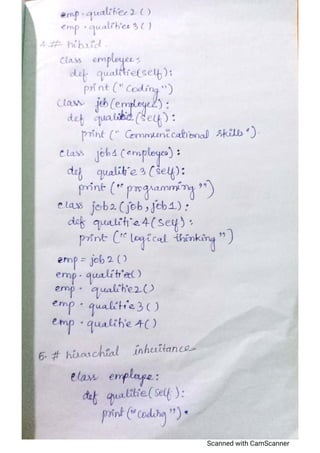 emp.qualitiec2()
emp.qualities3()
4.# hibrid.
class employee:
def qualitie(self):
print("Coding")
class job(employee):
def qualitie2(self):
print("Communicational skills").
class job1(employee):
def qualitie3(self):
print("programming")
class job2(job, job1):
def qualitie4(self):
print("logical thinking")
emp = job2()
emp.qualitie()
emp.qualitie2()
emp.qualitie3()
emp.qualitie4()
5.# hirarchial inheritance
class employe:
def qualitie(self):
print("Coding").
Scanned with CamScanner